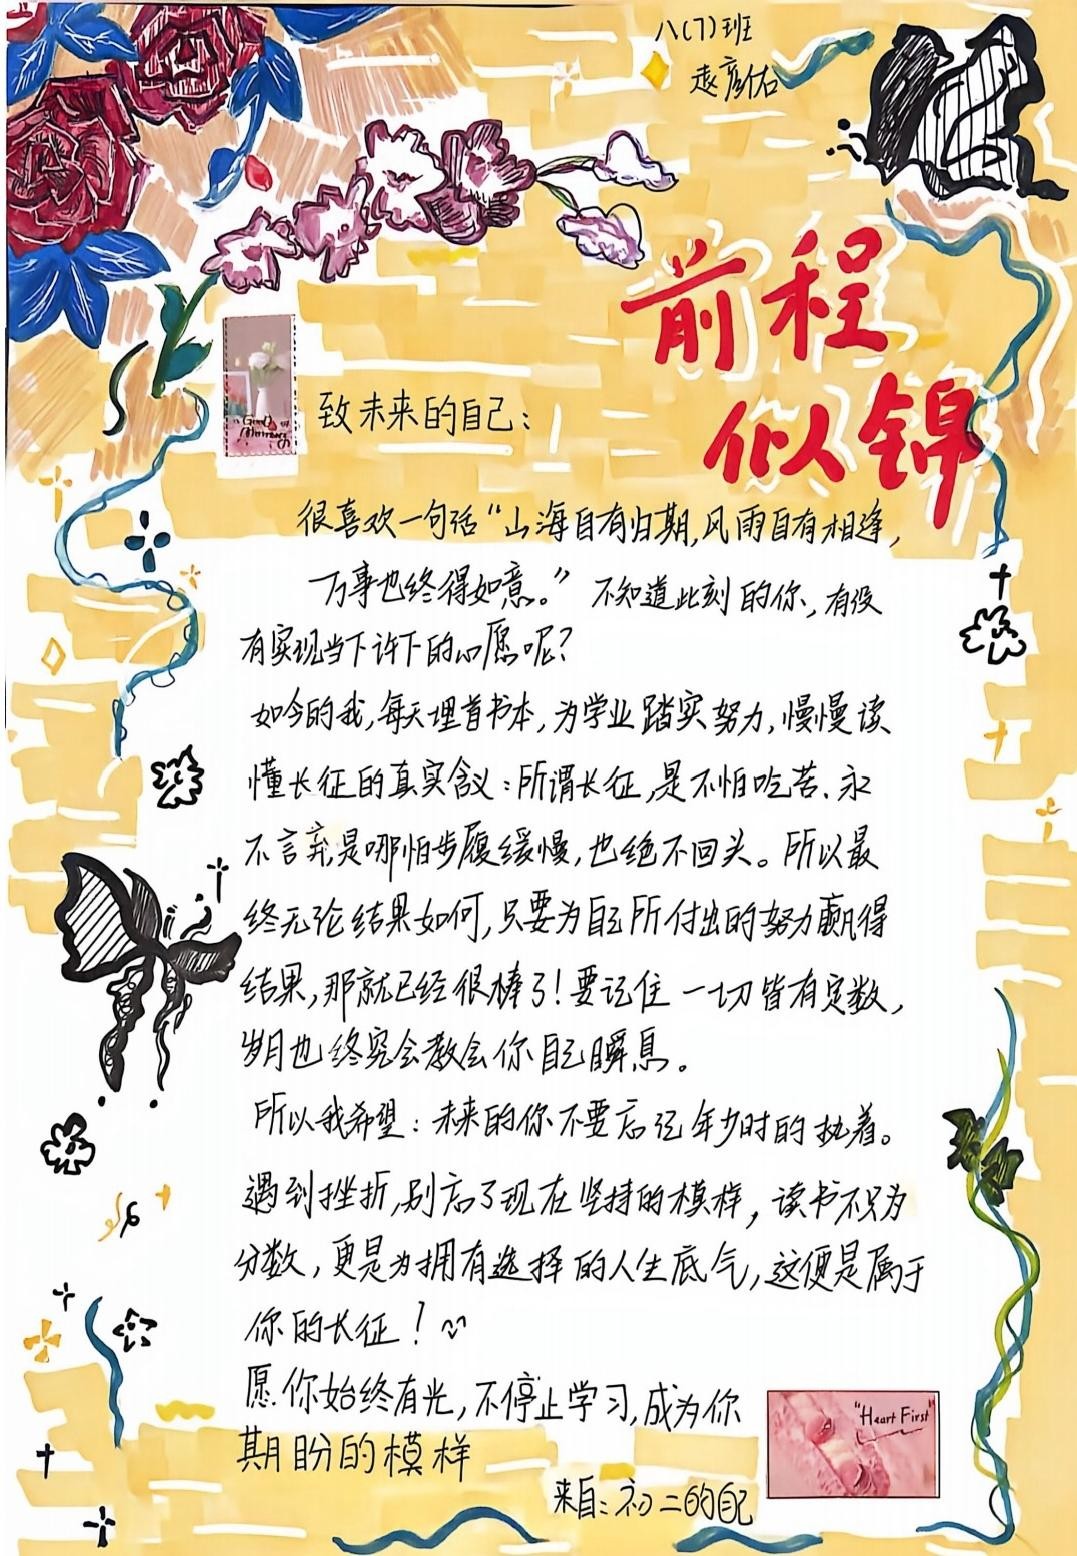 八(7)班
赵彦佑
前程
似锦
Good
Morning
致未来的自己:
很喜欢一句话“山海自有归期,风雨自有相逢,
万事也终得如意。”不知道此刻的你,有没
有实现当下许下的心愿呢?
如今的我,每天埋首书本,为学业踏实努力,慢慢读
懂长征的真实含义:所谓长征,是不怕吃苦、永
不言弃,是哪怕步履缓慢,也绝不回头。所以最
终无论结果如何,只要为自己所付出的努力赢得
结果,那就已经很棒了!要记住一切皆有定数,
岁月也终究会教会你自己瞬息。
所以我希望:未来的你不要忘记年少时的执着。
遇到挫折,别忘了现在坚持的模样,读书不只为
分数,更是为拥有选择的人生底气,这便是属于
你的长征!
愿你始终有光,不停止学习,成为你
期盼的模样
"Heart First"
来自:初二的自己